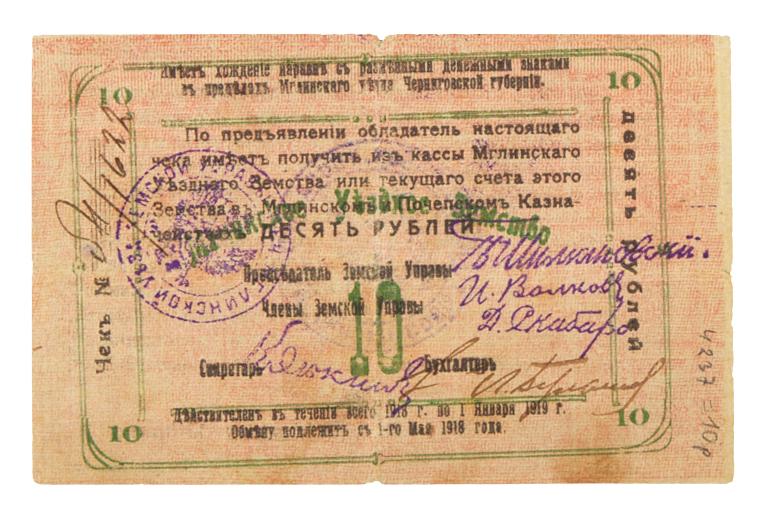 Имѣетъ хожденіе наравнѣ съ размѣнными денежными знаками
въ предѣлахъ Мглинскаго уѣзда Черниговской губерніи.
10 10
По предъявленіи обладатель настоящаго
чека имѣетъ получить изъ кассы Мглинскаго
Уѣзднаго Земства или текущаго счета этого
Земства въ Мглинскомъ и Почепскомъ Казна-
чействахъ ДЕСЯТЬ РУБЛЕЙ
Предсѣдатель Земской Управы
Члены Земской Управы
И. Волковъ
10
Секретарь Бухгалтеръ
Дѣйствителенъ въ теченіи всего 1918 г. по 1 Января 1919 г.
Обмѣну подлежитъ съ 1-го Мая 1918 года.
10 10
Чекъ №
десять рублей
Земство
4237=10р